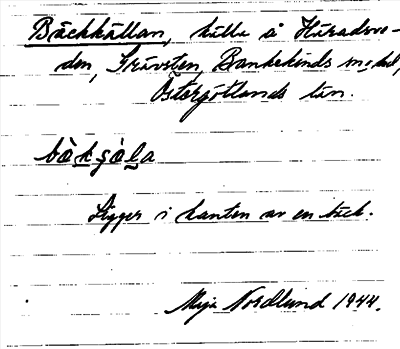 Bäckkällan, källa å Häradsve-
den, Grävsten, Bankekinds sn o hd,
Östergötlands län.
bäkɕäla
Ligger i kanten av en bäck.
Maja Nordlund 1944.